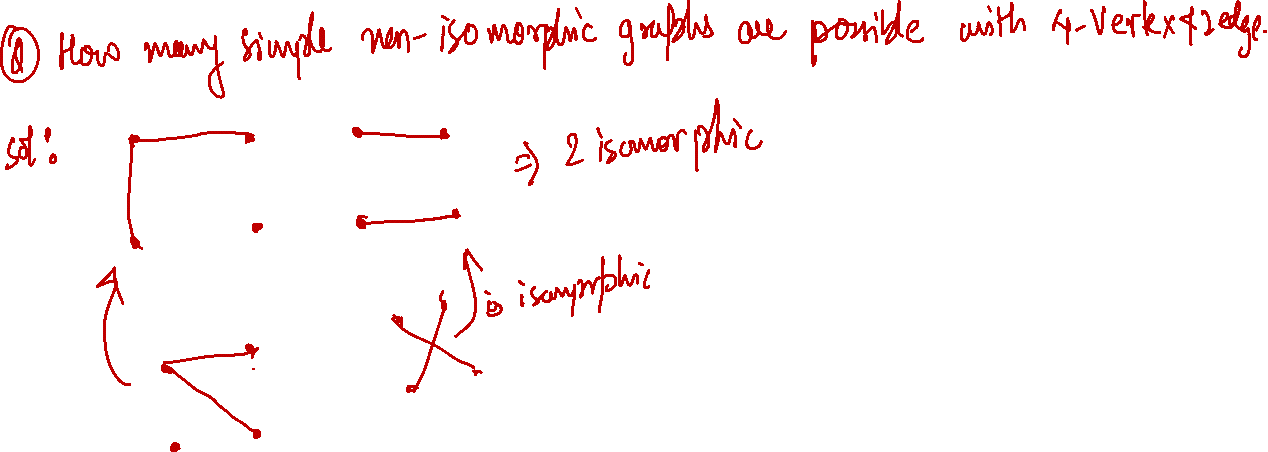 Q How many simple non-isomorphic graphs are possible with 4-vertex & 2 edge.
sol:
⇒ 2 isomorphic
is isomorphic